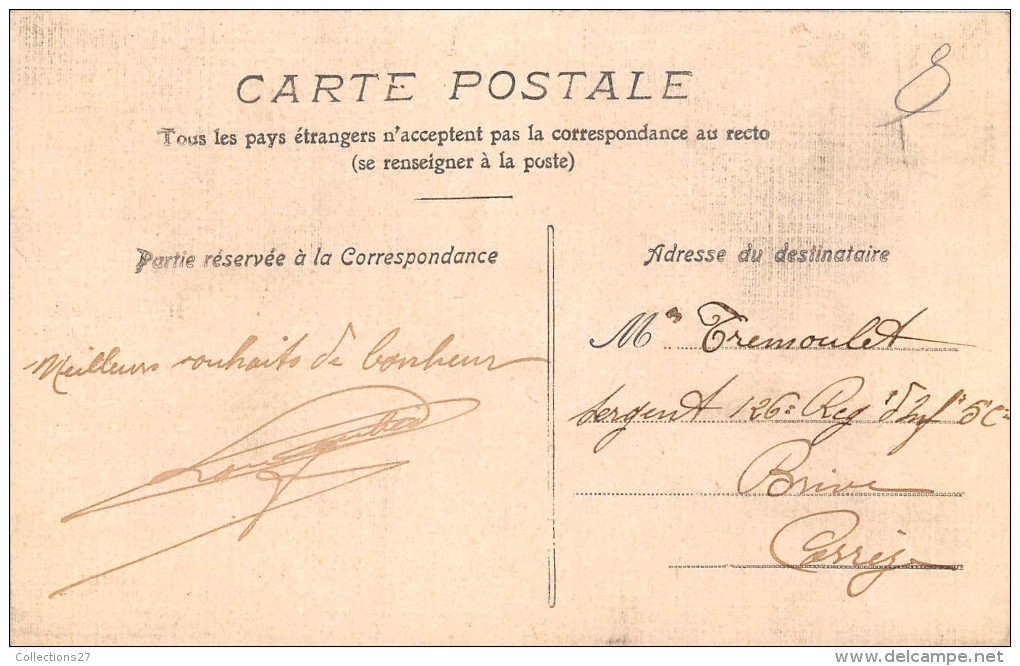 CARTE POSTALE
Tous les pays étrangers n'acceptent pas la correspondance au recto
(se renseigner à la poste)
Partie réservée à la Correspondance
Adresse du destinataire
Meilleurs souhaits de bonheur
Mr Tremoulet
Sergent 126e Reg d'Inf 5e Cie
Brive
Corrèze
Collections27
delcampe.net